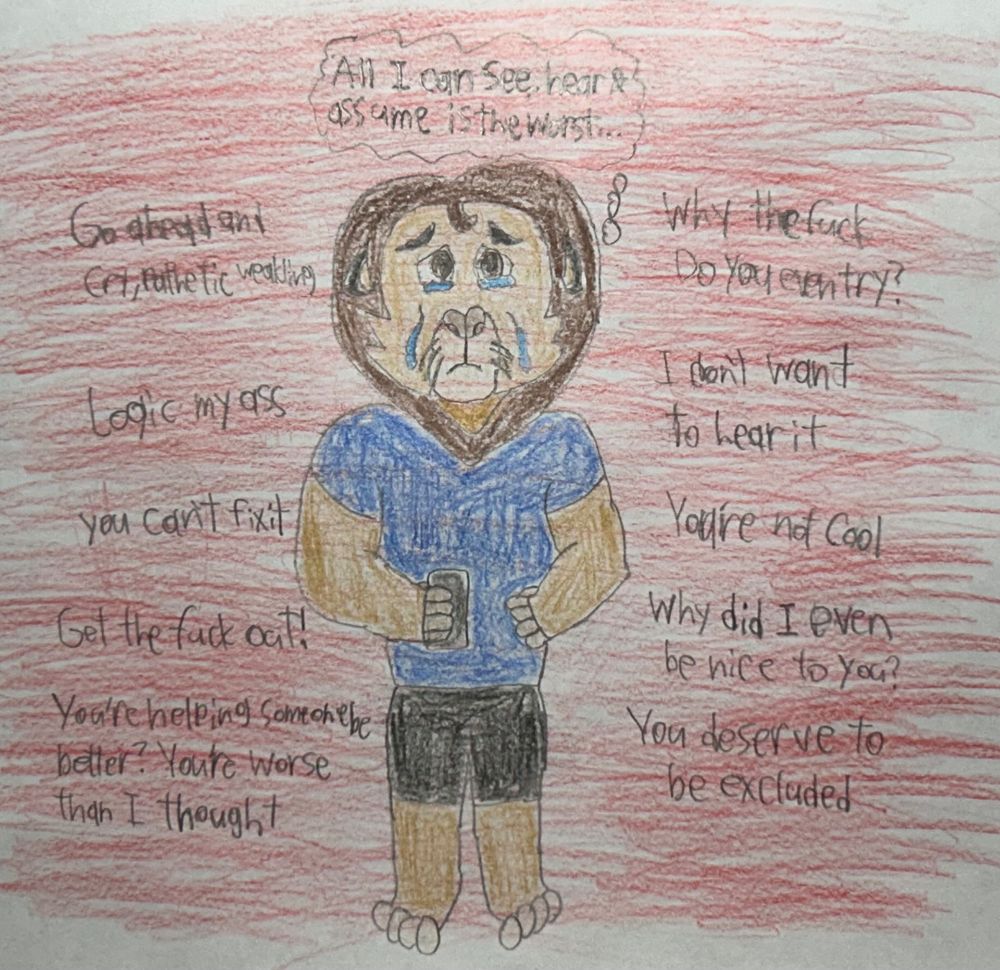 All I can see, hear &
assume is the worst...
Go ahead and
Cry, Pathetic weakling
Logic my ass
you can't fix it
Get the fuck out!
You're helping someone be
better? You're worse
than I thought
Why the fuck
Do You even try?
I don't want
to hear it
You're not Cool
Why did I even
be nice to you?
You deserve to
be excluded